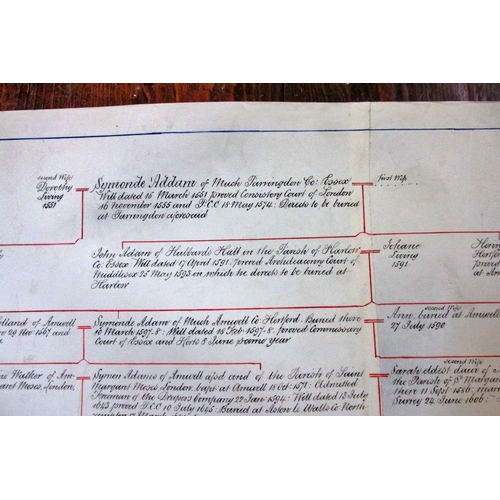 second Wife
Dorothy
living
1551
Symonde Addam of Much Parringdon Co: Essex
Will dated 15 March 1551 proved Consistory Court of London
16 November 1555 and P.C.C 18 May 1574: Directs to be buried
at Parringdon aforesaid
first Wife
John Adam of Hulbards Hall in the Parish of Harlow
Co: Essex. Will dated 17 April 1591. proved Archdeaconry Court of
Middlesex 25 May 1593 in which he directs to be buried at
Harlow
Johane
Living
1591
Henry
Hertford
proved
at Am
olland of Amwell
29 Nov 1567 and
Symonde Adam of Much Amwell Co: Hertford. Buried there
16 March 1597.8: Will dated 18 Feb: 1597.8. proved Commissary
Court of Essex and Herts 8 June same year
second Wife
Ann, buried at Amwell
27 July 1590
Walker of Am
garet Moses, London.
Symon Adams of Amwell afsd and of the Parish of Saint
Margaret Moses London. bapt at Amwell 18 Oct: 1571: Admitted
Freeman of the Drapers Company 22 Jan: 1594: Will dated 13 July
1643 proved P.C.C 10 July 1645: Buried at Aston le Walls Co North
second Wife
Sarah eldest daur of
the Parish of St Margar
there 11 Sept 1586: marr
Surry 24 June 1606: